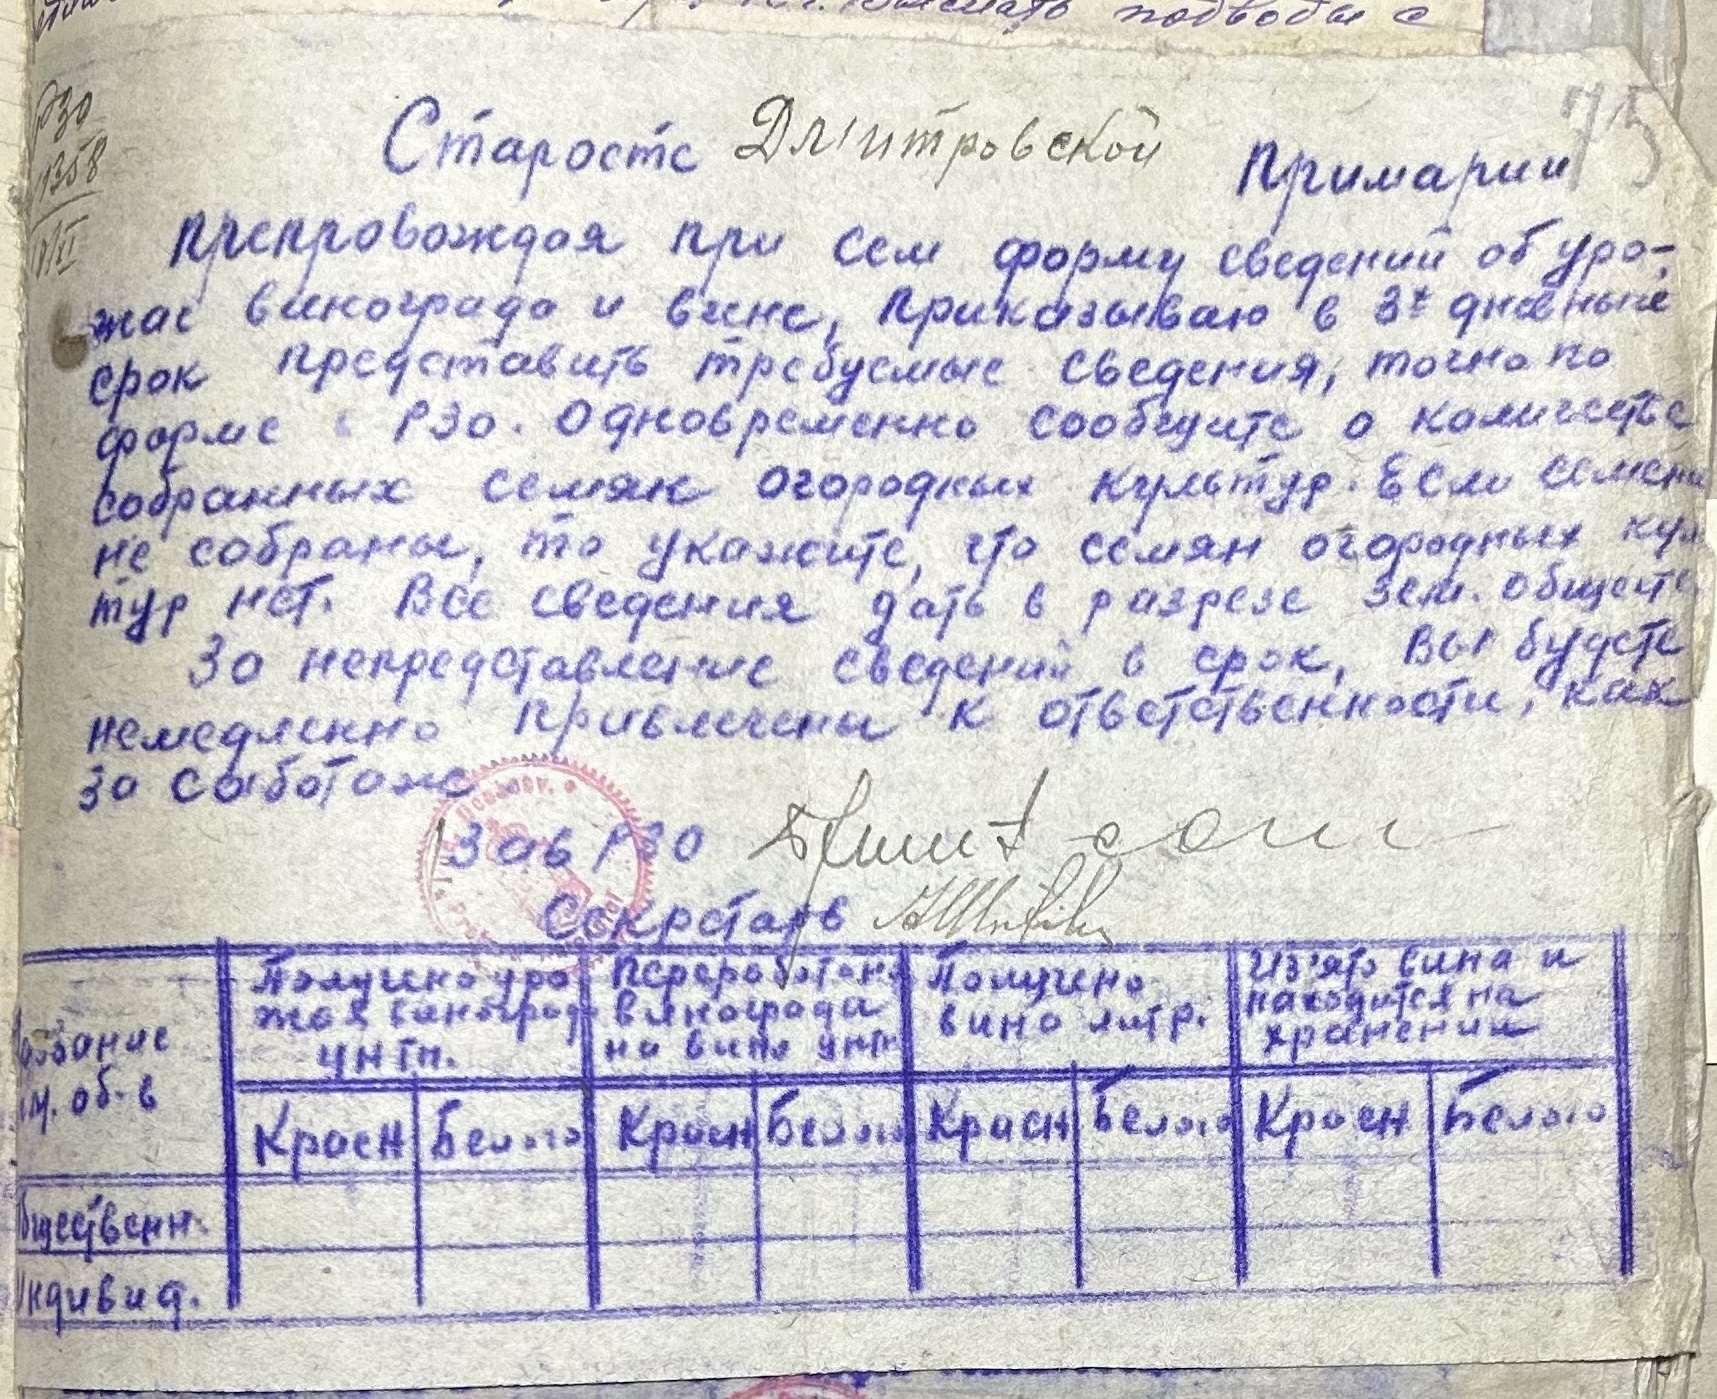 подводы с
РЗО
1358
10/XI
75
Старосте Дмитровской Примарии
Препровождая при сем форму сведений об уро-
жае винограда и вине, приказываю в 3х дневный
срок представить требуемые сведения, точно по
форме в РЗО. Одновременно сообщите о количестве
собранных семяк огородных культур. Если семена
не собраны, то укажите, что семян огородных кул
тур нет. Все сведения дать в разрезе зем. обществ
За непредставление сведений в срок, Вы будете
немедленно привлечены к ответственности, как
за саботаж
Зав РЗО
Секретарь
Название
зем. об-в
Получено уро
жая виноград
цнтн.
Переработано
винограда
на вино цнтн
Получено
вина литр.
Из'ято вина и
находится на
хранении
Красн Белого Красн Белого Красн Белого Красн Белого
Обществен.
Индивид.